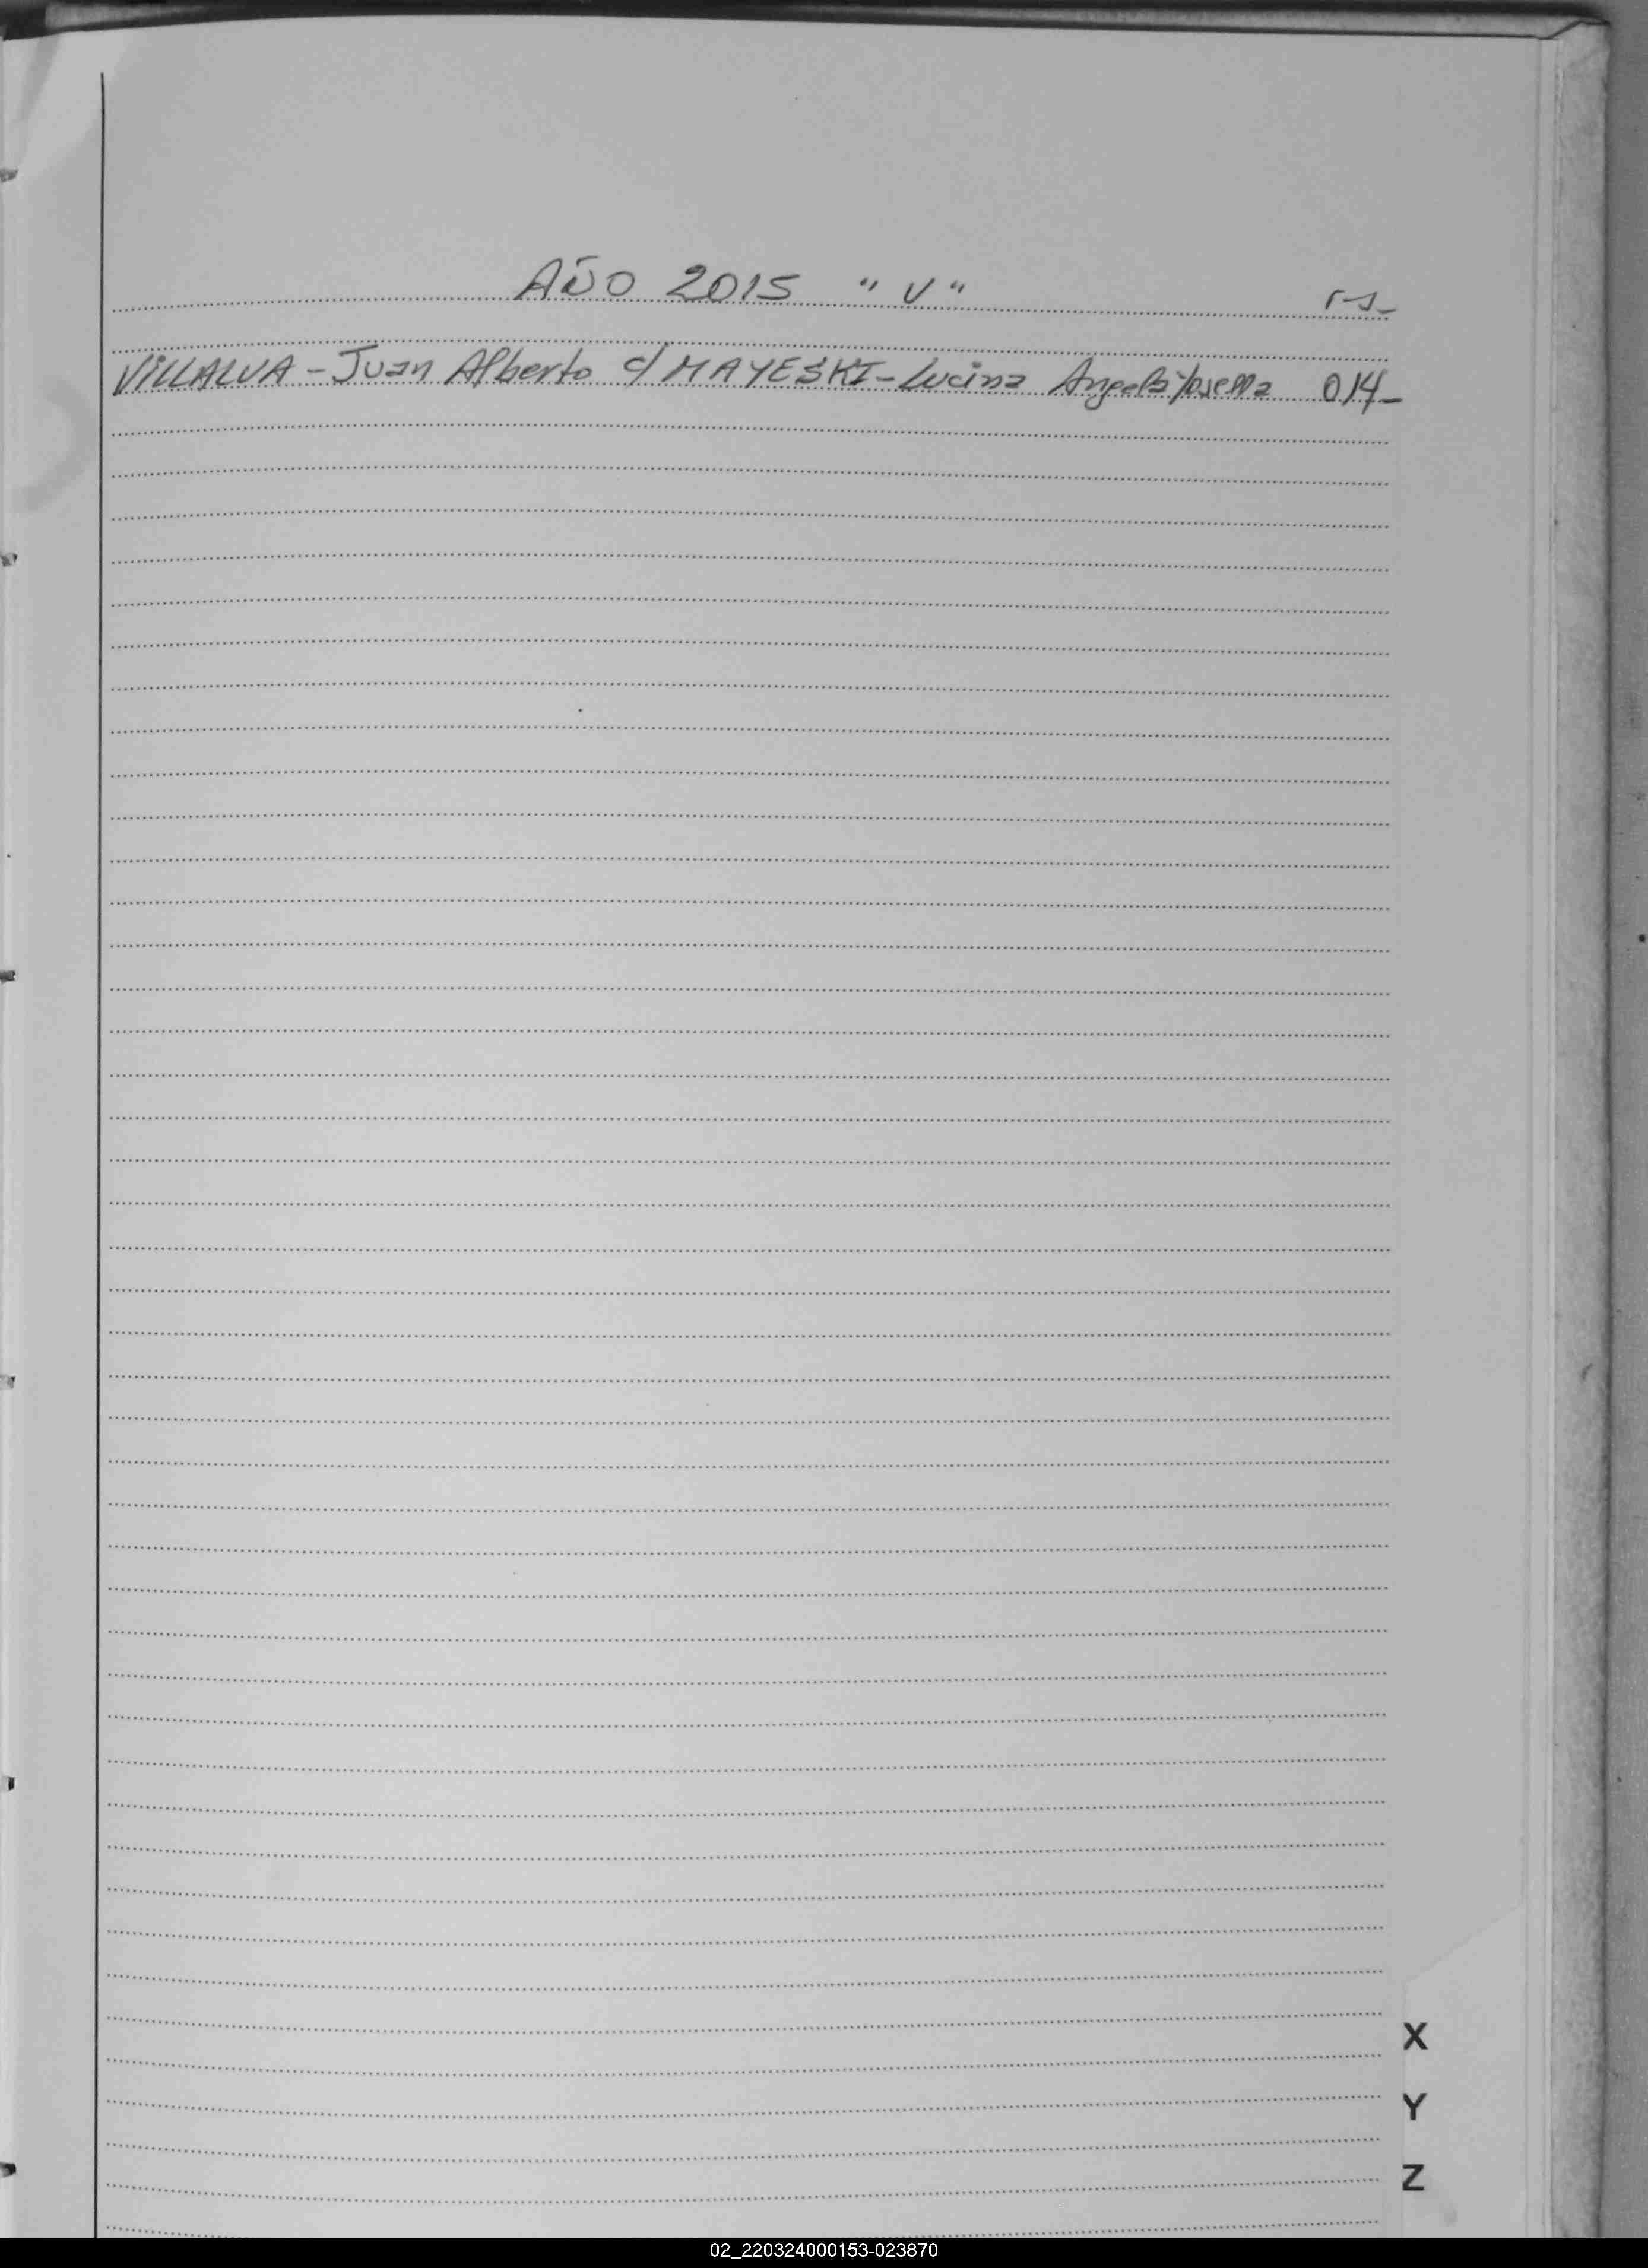 AÑO 2015 "V"
VILLALVA - Juan Alberto c/ MAYESKI - Lucina Angela 014-
X
Y
Z
02_220324000153-023870